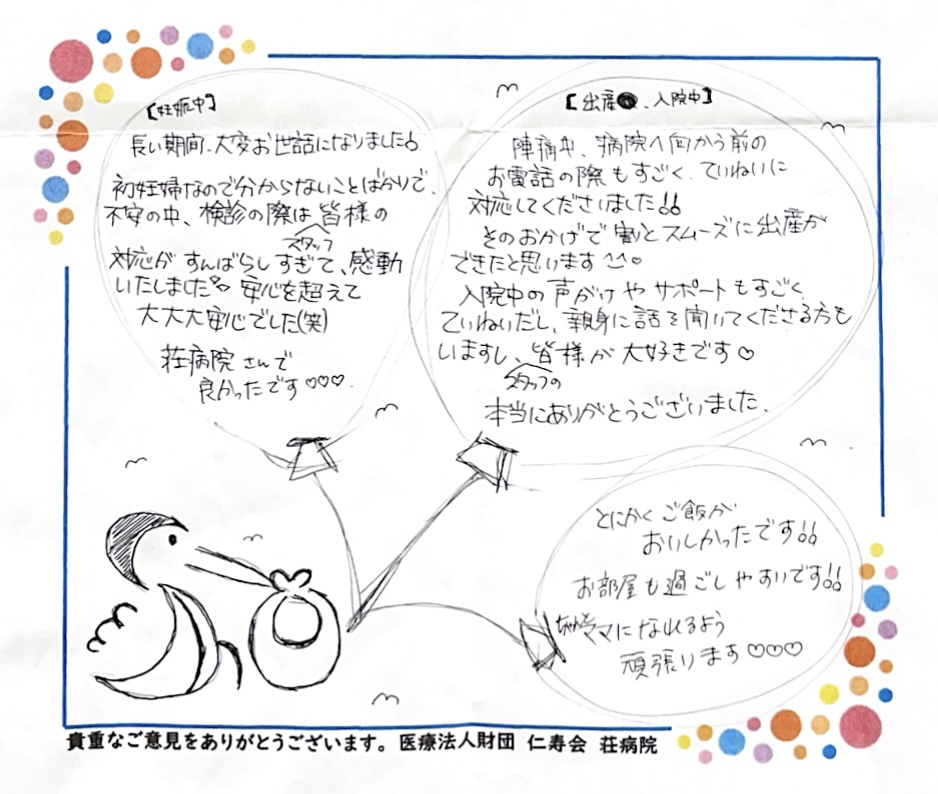 【妊娠中】
長い期間、大変お世話になりました
初妊婦なので分からないことばかりで、
不安の中、検診の際は皆様の
スタッフ
対応がすんばらしすぎて、感動
いたしました 安心を超えて
大大大安心でした(笑)
荘病院さんで
良かったです♡♡♡.
【出産、入院中】
陣痛中、病院へ向かう前の
お電話の際もすごく、ていねいに
対応してくださいました!!
そのおかげで割とスムーズに出産が
できたと思います^^。
入院中の声がけやサポートもすごく
ていねいだし、親身に話を聞いてくださる方も
いますし、皆様が大好きです♡
スタッフの
本当にありがとうございました。
とにかくご飯が
おいしかったです!!
お部屋も過ごしやすいです!!
ちゃんとママになれるよう
頑張ります♡♡♡
貴重なご意見をありがとうございます。医療法人財団 仁寿会 荘病院